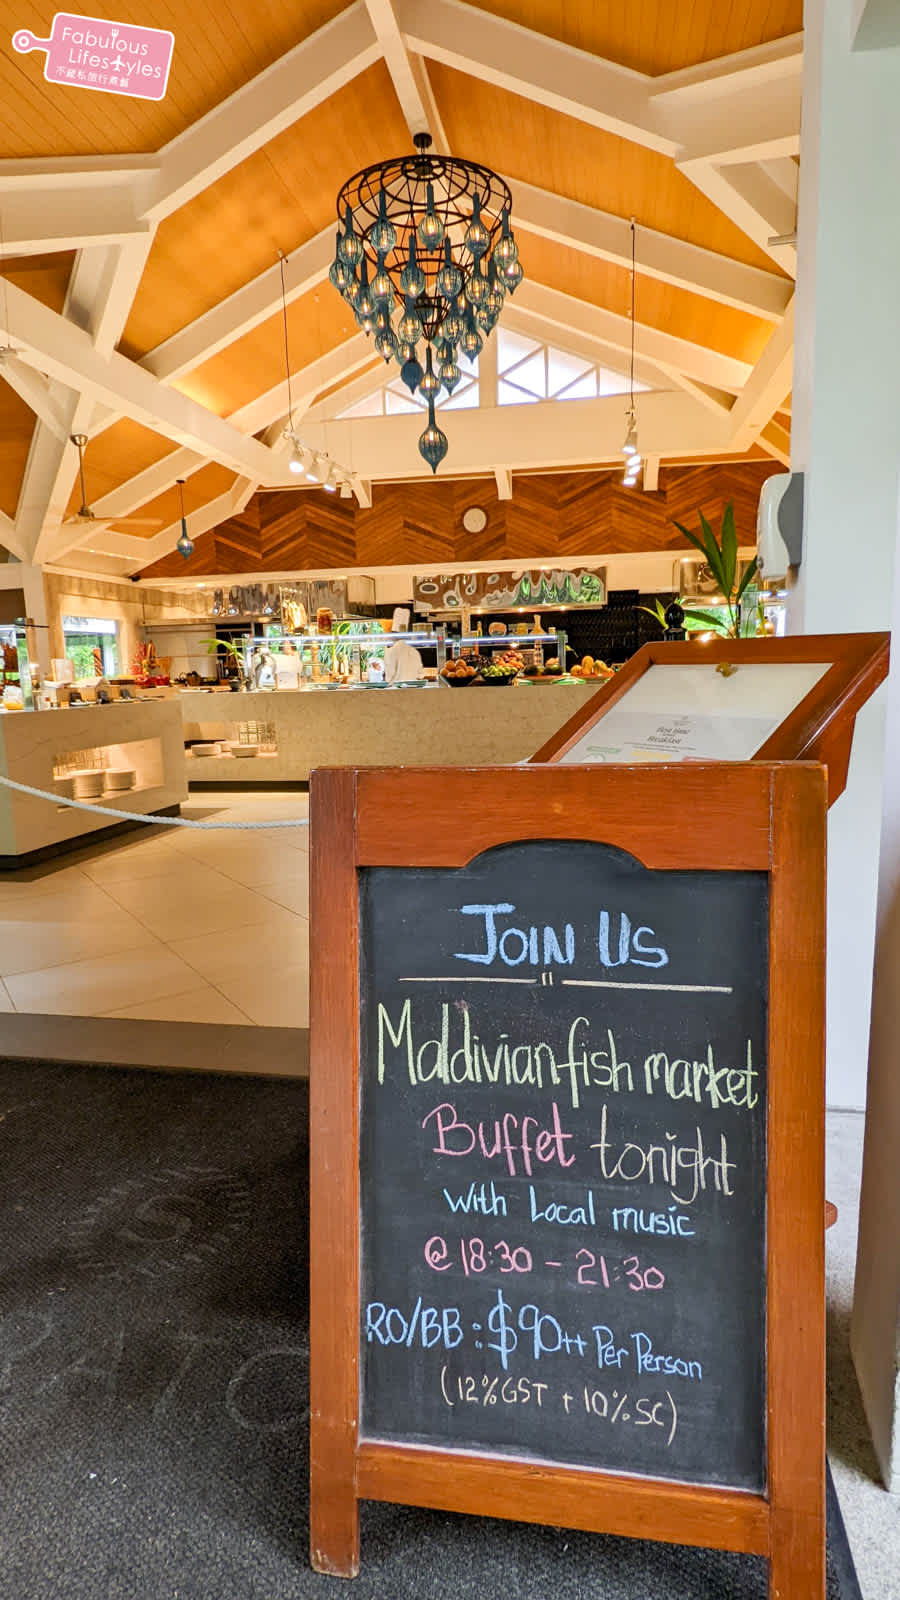 Fabulous
Lifestyles
不藏私旅行煮藝
Best time
Breakfast
JOIN US
Maldivian fish market
Buffet tonight
with Local music
@ 18:30 - 21:30
RO/BB : $90++ Per Person
(12% GST + 10% SC)